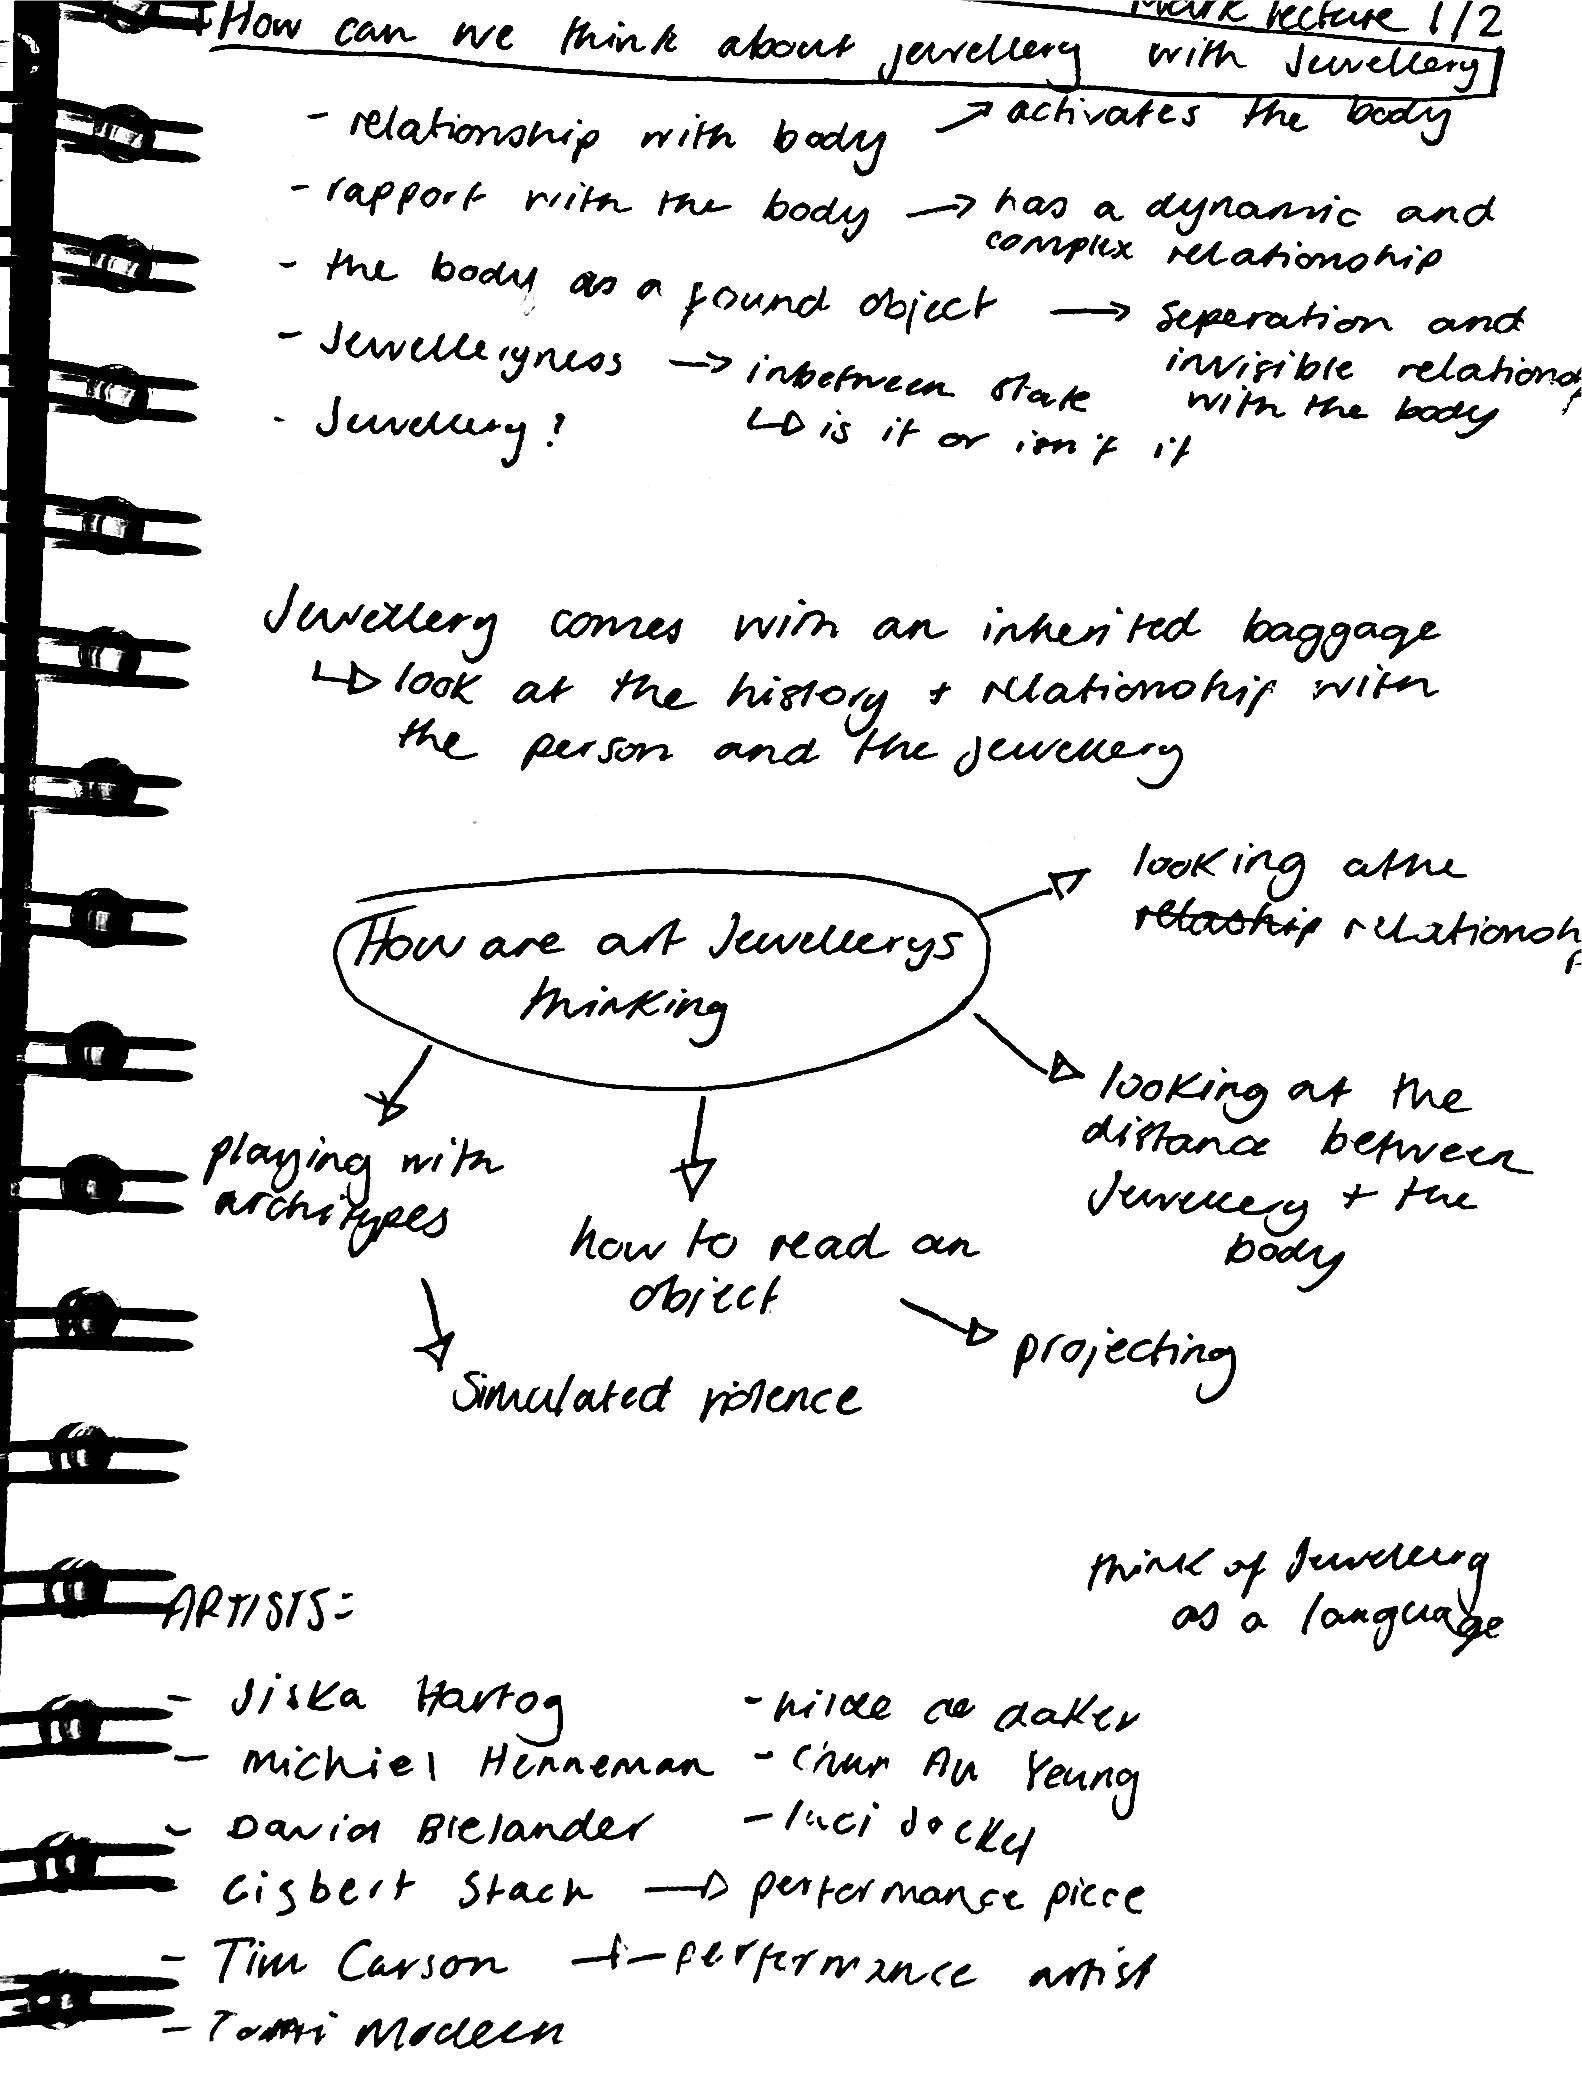 Mark lecture 1/2
How can we think about jewellery with Jewellery
- relationship with body → activates the body
- rapport with the body → has a dynamic and
complex relationship
- the body as a found object → seperation and
invisible relationship
with the body
- Jewelleryness → inbetween state
↳ is it or isn't it
- Jewellery?
Jewellery comes with an inherited baggage
↳ look at the history + relationship with
the person and the jewellery
How are art Jewellerys
thinking
looking athe
relaship relationship
looking at the
distance between
Jewellery + the
body
playing with
architypes
how to read an
object
projecting
Simulated violence
think of Jewellery
as a language
ARTISTS=
- Jiska Hartog
- Michiel Henneman
- David Bielander
Gisbert Stach → performance piece
- Tim Carson → performance artist
- Modeen
- hilde de daker
- Chun Au Yeung
- luci Jockel